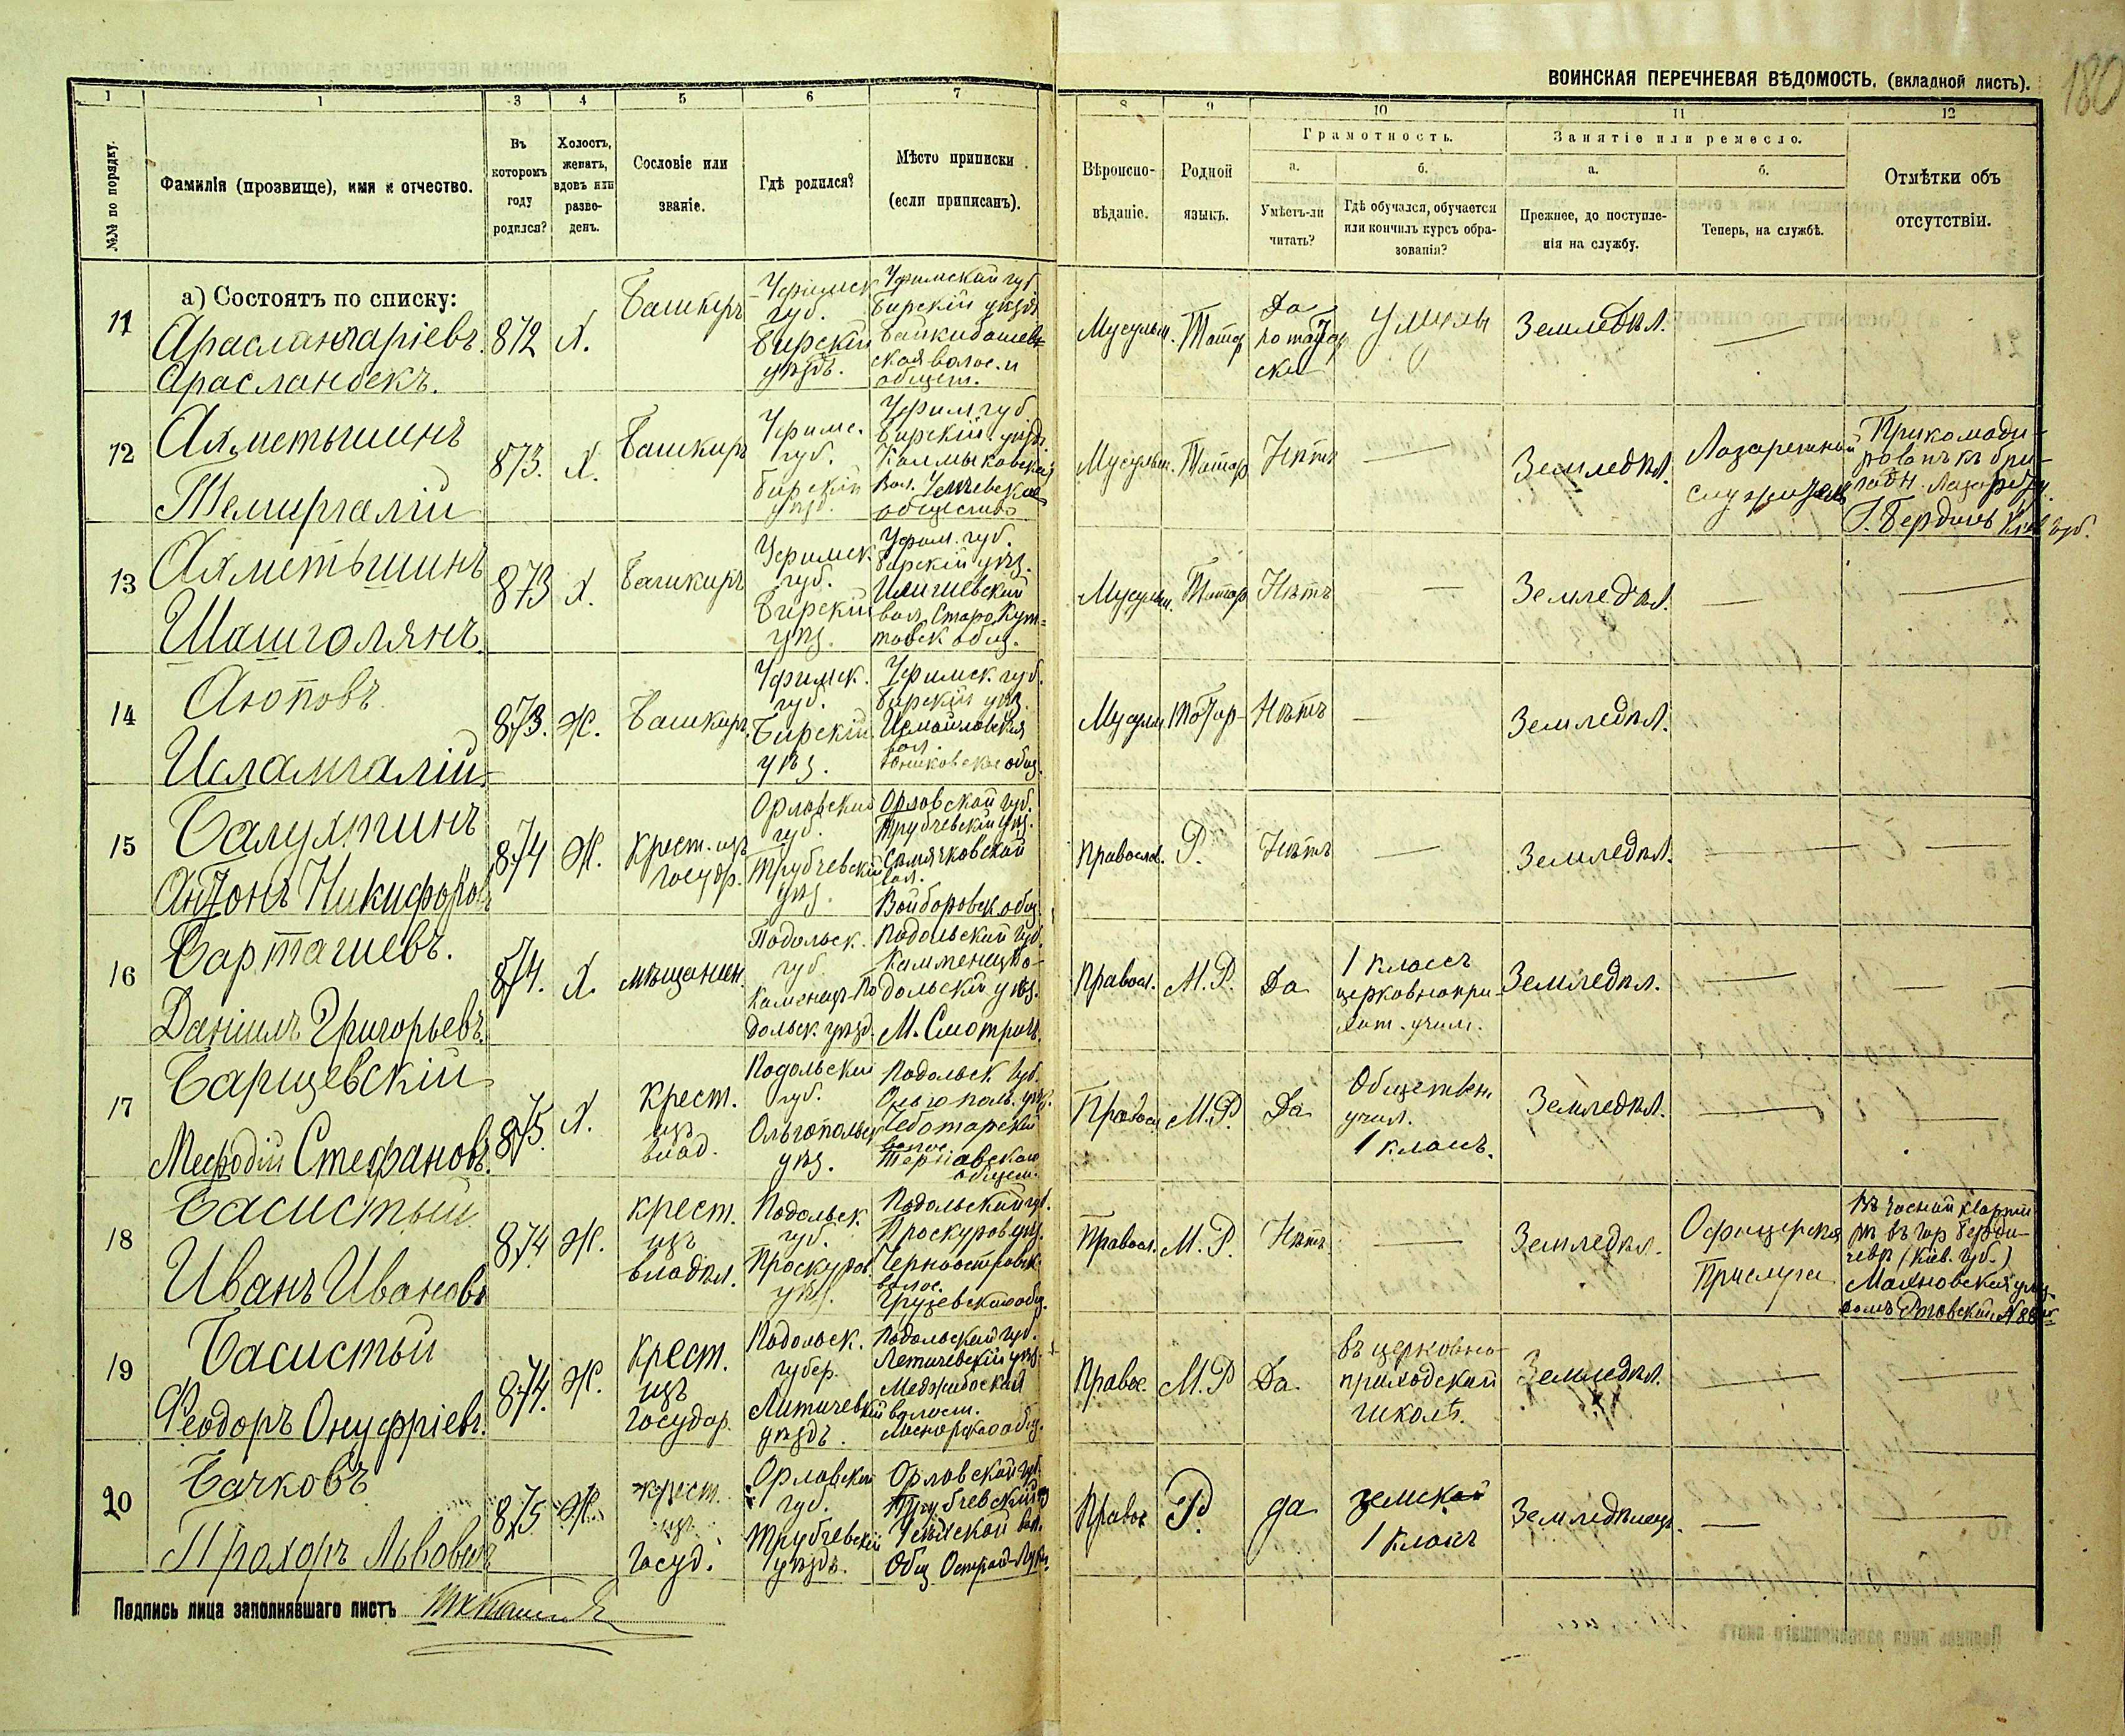 ВОИНСКАЯ ПЕРЕЧНЕВАЯ ВѢДОМОСТЬ. (вкладной листъ).
180
1 1 3 4 5 6 7 8 9 10 11 12
№№ по порядку.
Фамилія (прозвище), имя и отчество.
Въ которомъ году родился?
Холостъ, женатъ, вдовъ или разведенъ.
Сословіе или званіе.
Гдѣ родился?
Мѣсто приписки (если приписанъ).
Вѣроисповѣданіе.
Родной языкъ.
Грамотность.
а. Умѣетъ-ли читать?
б. Гдѣ обучался, обучается или кончилъ курсъ образованія?
Занятіе или ремесло.
а. Прежнее, до поступленія на службу.
б. Теперь, на службѣ.
Отмѣтки объ отсутствіи.
а) Состоятъ по списку:
11
Араслангаріевъ
Арасланбекъ.
872
Х.
Башкиръ
Уфимск
губ.
Бирскій
уѣздъ.
Уфимской губ
Бирскій уѣздъ
Байкибашев
ская волос. и
общест.
Мусульм.
Татар
Да
по татар
ски
У муллы
Земледѣл.
—
12
Ахметьшинъ
Темиргалій
873.
Х.
Башкиръ
Уфимс.
губ.
Бирскій
уѣзд.
Уфим. губ.
Бирскій уѣзд.
Калмыковской
Вол.
общество
Мусульм.
Татар
Нѣтъ
—
Земледѣл.
Лазаретный
служитель
Прикоманди-
рованъ къ бри-
гадн. Лазарету.
Г. Бердичъ Кіев губ.
13
Ахметьшинъ
Шашголянъ
873
Х.
Башкиръ
Уфимск.
губ.
Бирскій
уѣз.
Уфим. губ.
Бирскій уѣз.
Илишевской
вол. Старо Кук-
товск общ.
Мусульм.
Татар
Нѣтъ
—
Земледѣл.
—
—
14
Аюповъ
Исламгалій
873.
Ж.
Башкиръ
Уфимск.
губ.
Бирскій
уѣз.
Уфимск. губ.
Бирскій уѣз.
Измайловская
вол.
общ.
Мусулм
Татар
Нѣтъ
—
Земледѣл.
15
Балухтинъ
Антонъ Никифоровъ
874
Ж.
Крест. изъ
Госудр.
Орловской
губ.
Трубчевскій
уѣз.
Орловской губ.
Трубчевскій уѣз.
Семячковской
вол.
Войборовск. общ.
Православ.
Р.
Нѣтъ
—
Земледѣл.
—
—
16
Барташевъ.
Даніилъ Григорьевъ.
874.
Х.
мѣщанин.
Подольск.
губ.
Каменец-По
дольск. уѣзд.
Подольской губ.
Камменецко-
дольскій уѣз.
М. Смотричъ.
Правосл.
М. Р.
Да
1 классъ
церковнопри-
ход. учил.
Земледѣл.
—
—
17
Барщевскій
Мефодій Стефановъ.
875
Х.
Крест.
изъ
влад.
Подольской
губ.
Ольгопольск
уѣз.
Подольск губ.
Ольгополь. уѣз.
Чеботарской
волос.
Тернавского
общест.
Правосл
М. Р.
Да
Обществен.
учил.
1 классъ.
Земледѣл.
—
—
18
Басистый
Иванъ Ивановъ
874.
Ж.
крест.
изъ
владѣл.
Подольск
губ.
Проскуров.
уѣз.
Подольской губ.
Проскуров. уѣз.
Черноостровск.
волос.
Грузевского общ.
Правосл.
М. Р.
Нѣтъ
—
Земледѣл.
Офицерская
Прислуга
въ часной кварти
рѣ въ гор Берди-
чевѣ (Кіев. губ.)
Махновская ули
домъ Роговской №
19
Басистый
Феодоръ Онуфріевъ.
874.
Ж.
Крест.
изъ
Государ.
Подольск.
губер.
Литичевскій
уѣздъ.
Подольской губ.
Летичевскій уѣз.
Меджибоская
волост.
общ.
Правос.
М. Р
Да
въ церковно-
приходской
школѣ.
Земледѣл.
—
—
20
Бачковъ
Прохоръ Львовичъ
875
Ж.
крест.
изъ
Госуд.
Орловской
губ.
Трубчевскій
уѣздъ.
Орловской губ.
Трубчевскій
вол.
Общ Острой-Луки.
Правос
Р.
да
земской
1 класъ
Земледѣлецъ.
—
—
Подпись лица заполнявшаго листъ